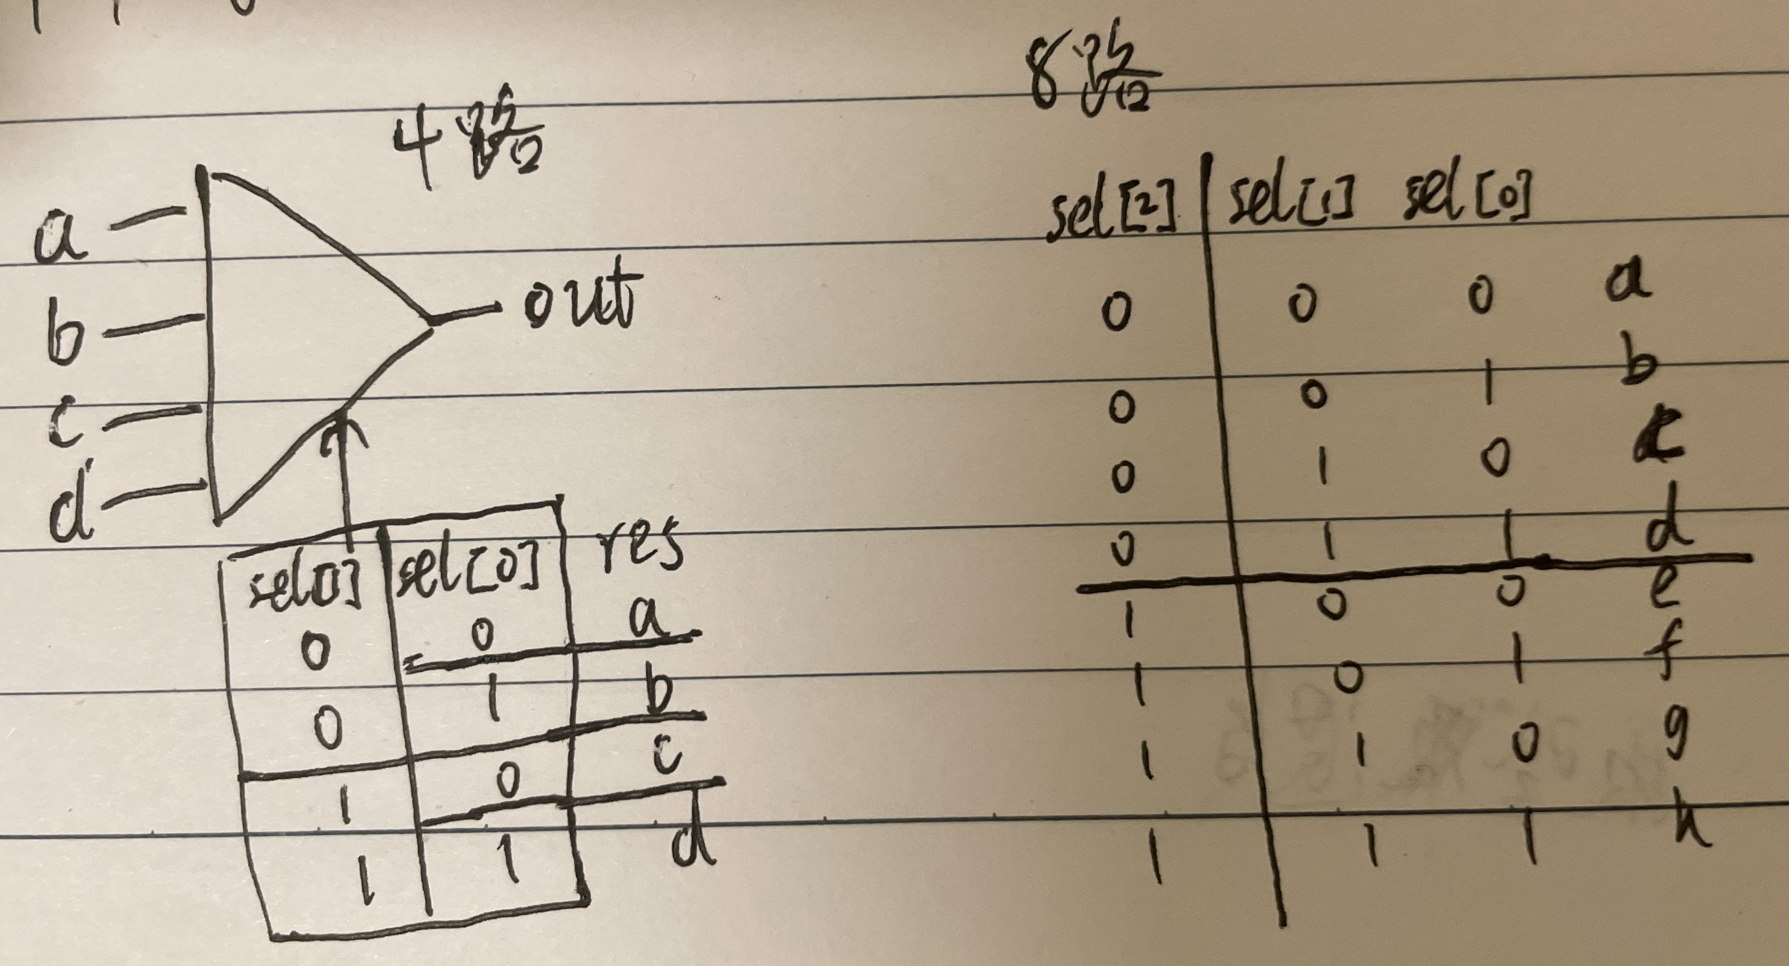 4 位
a
b
c
d
out
sel[1] sel[0] res
0 0 a
0 1 b
1 0 c
1 1 d
sel[2] sel[1] sel[0]
0 0 0 a
0 0 1 b
0 1 0 c
0 1 1 d
1 0 0 e
1 0 1 f
1 1 0 g
1 1 1 h